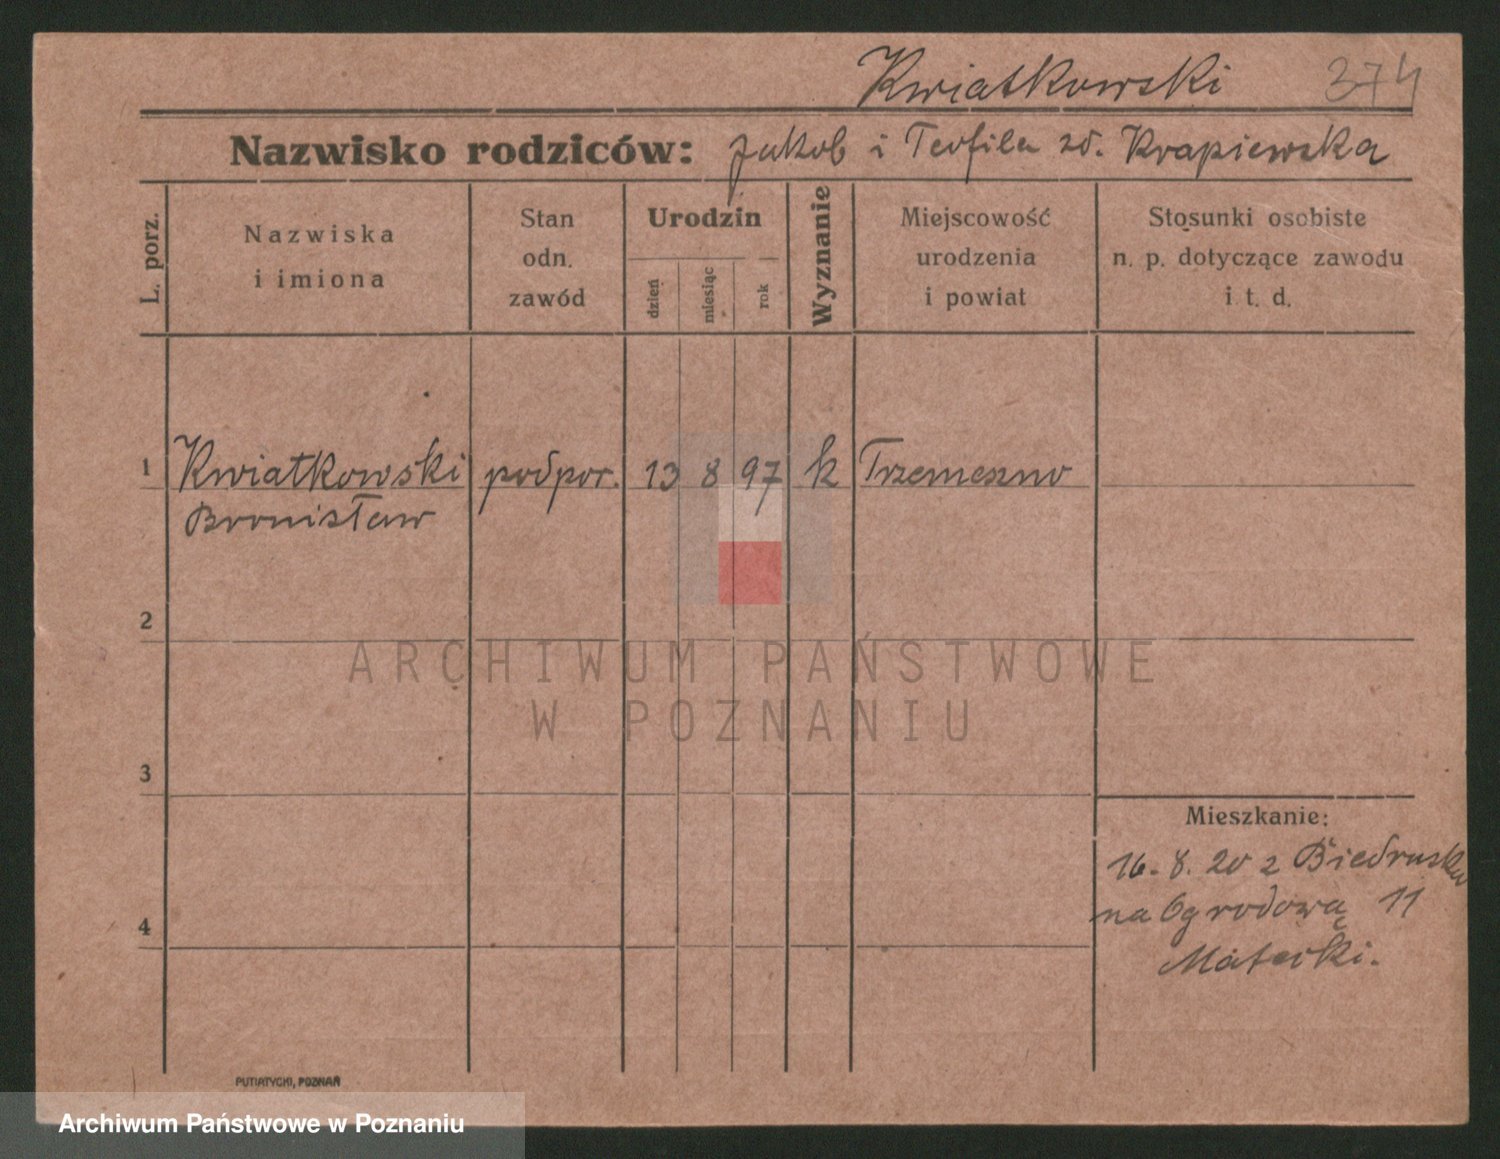 Kwiatkowski 374
Nazwisko rodziców: Jakob i Teofila zd. Krapiewska
L. porz.
Nazwiska
i imiona
Stan
odn.
zawód
Urodzin
dzień
miesiąc
rok
Wyznanie
Miejscowość
urodzenia
i powiat
Stosunki osobiste
n. p. dotyczące zawodu
i t. d.
1 Kwiatkowski podpor. 13 8 97 k Trzemeszno
Bronisław
2
ARCHIWUM PAŃSTWOWE
W POZNANIU
3
Mieszkanie:
16. 8. 20 z Biedruska
na Ogrodową 11
4
PUTIATYCKI, POZNAŃ
Archiwum Państwowe w Poznaniu